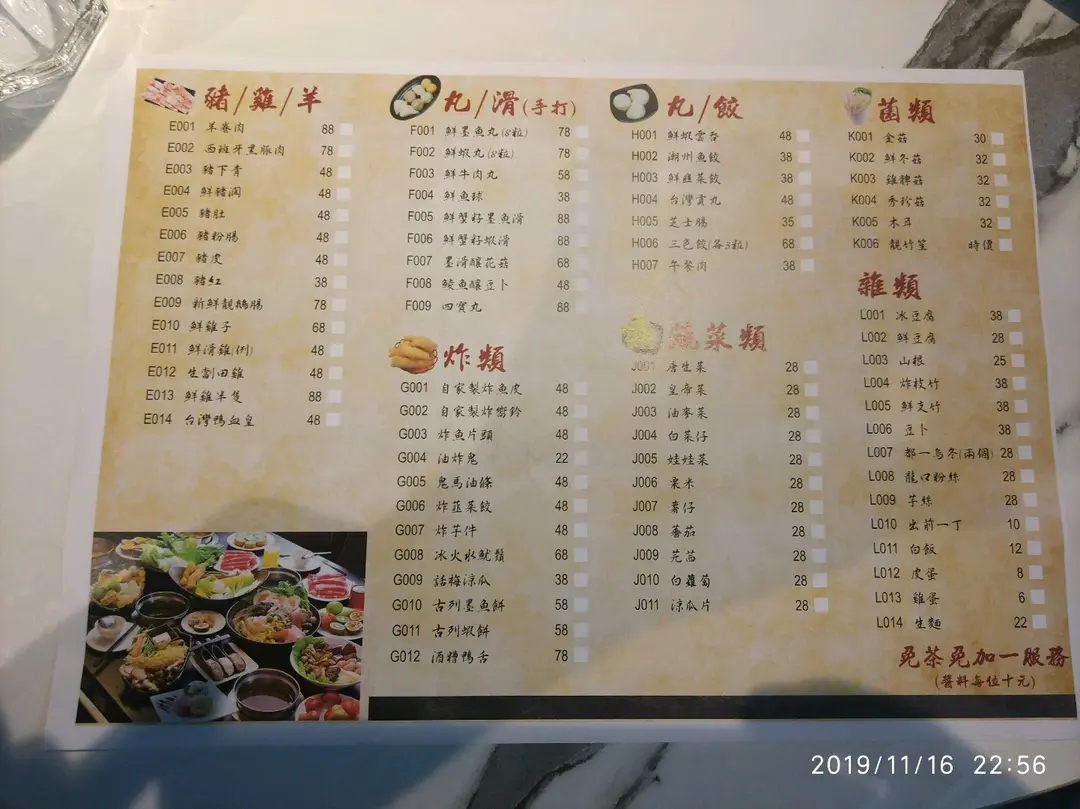 豬/雞/羊
E001 羊卷肉 88
E002 西班牙黑豚肉 78
E003 豬下青 48
E004 鮮豬潤 48
E005 豬肚 48
E006 豬粉腸 48
E007 豬皮 48
E008 豬紅 38
E009 新鮮靚鵝腸 78
E010 鮮雞子 68
E011 鮮滑雞(例) 48
E012 生劏田雞 48
E013 鮮雞半隻 88
E014 台灣鴨血皇 48
丸/滑(手打)
F001 鮮墨魚丸(8粒) 78
F002 鮮蝦丸(8粒) 78
F003 鮮牛肉丸 58
F004 鮮魚球 38
F005 鮮蟹籽墨魚滑 88
F006 鮮蟹籽蝦滑 88
F007 墨滑釀花菇 68
F008 鯪魚釀豆卜 48
F009 四寶丸 88
炸類
G001 自家製炸魚皮 48
G002 自家製炸響鈴 48
G003 炸魚片頭 48
G004 油炸鬼 22
G005 鬼馬油條 48
G006 炸韮菜餃 48
G007 炸芋件 48
G008 冰火水魷鬚 68
G009 話梅涼瓜 38
G010 古列墨魚餅 58
G011 古列蝦餅 58
G012 酒糟鴨舌 78
丸/餃
H001 鮮蝦雲吞 48
H002 潮州魚餃 38
H003 鮮韮菜餃 38
H004 台灣貢丸 48
H005 芝士腸 35
H006 三色餃(各3粒) 68
H007 午餐肉 38
蔬菜類
J001 唐生菜 28
J002 皇帝菜 28
J003 油麥菜 28
J004 白菜仔 28
J005 娃娃菜 28
J006 粟米 28
J007 薯仔 28
J008 蕃茄 28
J009 芫茜 28
J010 白蘿蔔 28
J011 涼瓜片 28
菌類
K001 金菇 30
K002 鮮冬菇 32
K003 雞髀菇 32
K004 秀珍菇 32
K005 木耳 32
K006 靚竹笙 時價
雜類
L001 冰豆腐 38
L002 鮮豆腐 28
L003 山根 25
L004 炸枝竹 38
L005 鮮支竹 38
L006 豆卜 38
L007 都一烏冬(兩個) 28
L008 龍口粉絲 28
L009 芋絲 28
L010 出前一丁 10
L011 白飯 12
L012 皮蛋 8
L013 雞蛋 6
L014 生麵 22
免茶免加一服務
(醬料每位十元)
2019/11/16 22:56